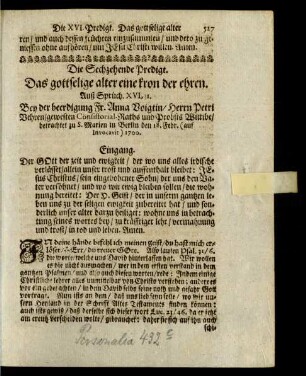 Die XVI. Predigt. Das gottselige alter 517
ren/ und auch dessen früchten einzusammlen / und dero zu ge-
niessen ohne aufhören / um JEsu Christi willen. Amen.
Die Sechzehende Predigt.
Das gottselige alter eine kron der ehren.
Auß Sprüch. XVI, 31.
Bey der beerdigung Fr. Anna Voigtin / Herrn Petri
Vehren / gewesten Consistorial-Raths und Probstes Wittibe /
betrachtet zu S. Marien in Berlin den 18. Febr. (auf
Invocavit) 1700.
Eingang.
Der GOtt der zeit und ewigkeit / der wo uns alles irdische
verlässet / allein unser trost und auffenthalt bleibet: JE-
sus Christus / sein eingebohrner Sohn / der uns den Va-
ter versöhnet / und wo wir ewig bleiben sollen / die woh-
nung bereitet: Der H. Geist / der in unserem gantzen le-
ben uns zu der seligen ewigkeit zubereitet hat / und son-
derlich unser alter darzu heiliget: wohne uns in betrach-
tung seines wortes bey / zu kräfftiger lehr / vermahnung
und trost / in tod und leben. Amen.
IN deine hände befehl ich meinen geist / du hast mich er-
löset / HErr / du treuer GOtt. Also lauten Psal. 31/ 6.
die worte / welche uns David hinterlassen hat. Wir wollen
es die nicht ausmachen / wer in dem ersten verstand in dem
gantzen Psalmen / und also auch diesen worten / rede: Indem einige
Christliche lehrer alles unmittelbar von Christo verstehen: andere es
vor ein gebet achten / so dem David seine seele noth und gefahr Gott
vortrage. Nun ist an dem / daß uns lieb seyn solle / wo wir un-
sern Heyland in der Schrifft Altes Testaments finden können:
auch ist gewiß / daß derselbe sich dieser wort Luc. 23/ 46. da er jetzt
am creutz verscheiden wolte / gebrauchet: daher sie sich auf ihn auch
schi-
Personalia 492